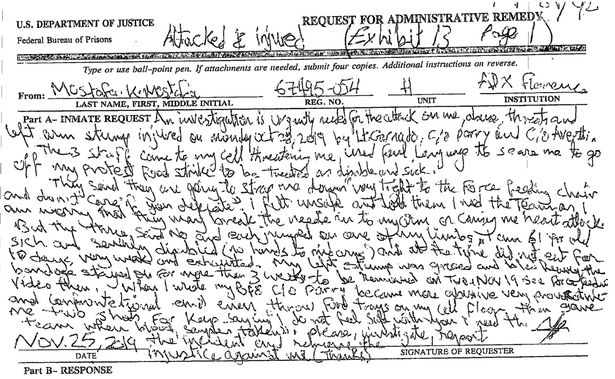 U.S. DEPARTMENT OF JUSTICE
REQUEST FOR ADMINISTRATIVE REMEDY
Federal Bureau of Prisons
Attacked & injured (Exhibit 13 Page 1)
Type or use ball-point pen. If attachments are needed, submit four copies. Additional instructions on reverse.
From: Mostafa. K. Mostafa 67495-054 H ADX Florence
LAST NAME, FIRST, MIDDLE INITIAL REG. NO. UNIT INSTITUTION
Part A- INMATE REQUEST An investigation is urgently need for the attack on me abuse, threat and
left arm stump injured on monday oct 28, 2019 by Lt. C/o Parry and C/o
The 3 staff came to my cell threatening me, used foul Language to scare me to go
off my protest food strike to be treated as disable and sick.
They send they are going to strap me down very tight to the Force feeding chair
and don't care if you defecate. I felt unsafe and told them I need the Team on
am worry that they may break the needle in to my arm or causing me heart attack.
But the three, said No and each jumped on one of my limbs. I am 61 Yr old
sick and disabled (no hands to forearms) and at the time did not eat for
10 days, very weak and exhausted. My left stump was and
bandage stayed on for more than 3 weeks to be removed on Tues Nov 19 See force feeding
video then. When I wrote my BP8 C/o Parry became more abusive very
and confrontational and even throw Food trays on my cell floor then gave
me two shots for keep saying I do not feel safe with you i need the
team when blood sample taken. please, investigate, report
Nov. 25, 2019 the incident and remove the
injustice against me (Thanks)
DATE SIGNATURE OF REQUESTER
Part B- RESPONSE